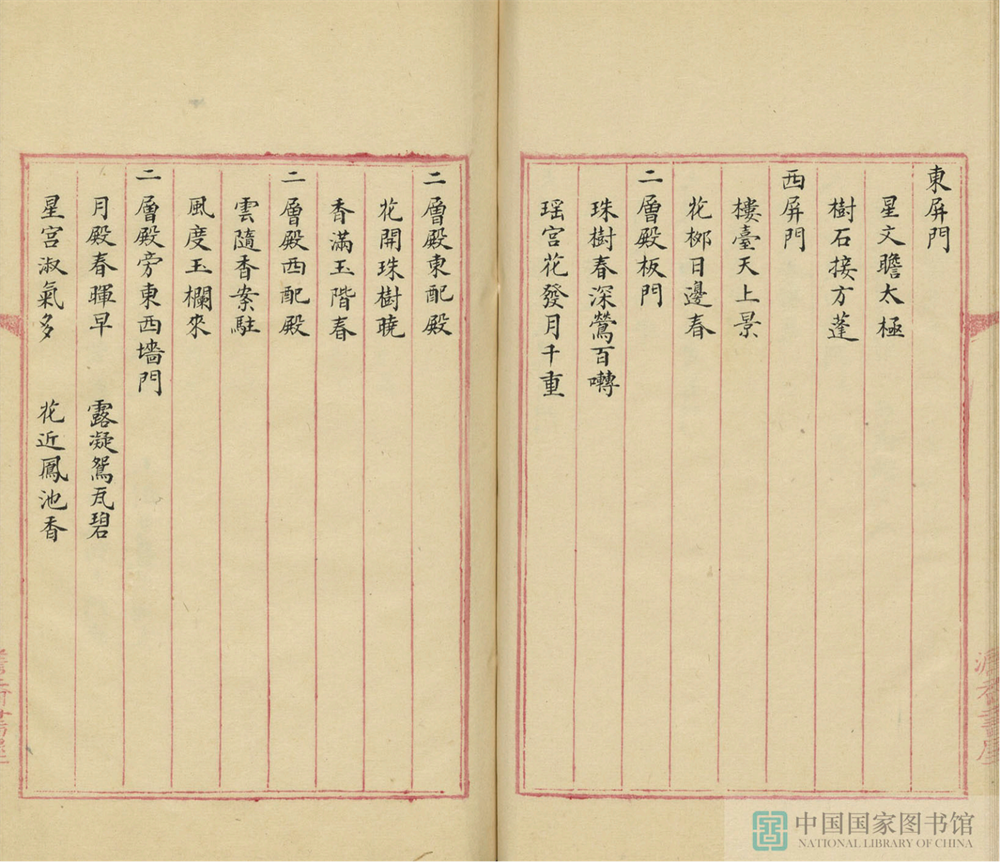 東屏門
星文瞻太極
樹石接方蓬
西屏門
樓臺天上景
花栁日邊春
二層殿板門
珠樹春深鶯百囀
瑶宮花發月千重
二層殿東配殿
花開珠樹曉
香滿玉階春
二層殿西配殿
雲隨香案駐
風度玉欄來
二層殿旁東西墻門
月殿春暉早 露凝鴛瓦碧
星宮淑氣多 花近鳳池香
中国国家图书馆
NATIONAL LIBRARY OF CHINA